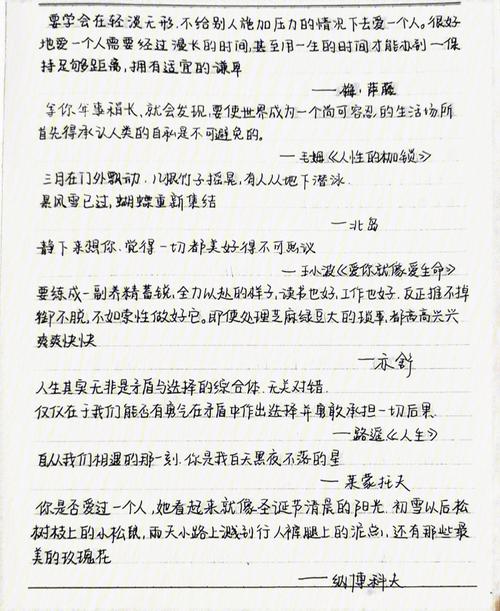 要学会在轻漫无形、不给别人施加压力的情况下去爱一个人。很好
地爱一个人需要经过漫长的时间,甚至用一生的时间才能办到一保
持足够距离,拥有适宜的谦卑
——梅·萨藤
等你年事稍长、就会发现,要使世界成为一个尚可容忍的生活场所
首先得承认人类的自私是不可避免的。
—毛姆《人性的枷锁》
三月在门外飘动、几根竹子摇晃,有人从地下潜泳
暴风雪已过,蝴蝶重新集结
—北岛
静下来想你、觉得一切都美好得不可思议
—王小波《爱你就像爱生命》
要练成一副养精蓄锐、全力以赴的样子,读书也好,工作也好、反正推不掉
卸不脱、不如索性做好它。即使处理芝麻绿豆大的琐事,都高高兴兴
爽爽快快
—亦舒
人生其实无非是矛盾与选择的综合体、无关对错.
仅仅在于我们能否有勇气在矛盾中作出选择并勇敢承担一切后果.
—路遥《人生》
自从我们相遇的那一刻、你是我白天黑夜不落的星
—莱蒙托夫
你是否爱过一个人,她看起来就像圣诞节清晨的阳光、初雪以后松
树枝上的小松鼠,雨天小路上溅到行人裤腿上的泥点,还有那些最
美的玫瑰花
——纵博科夫